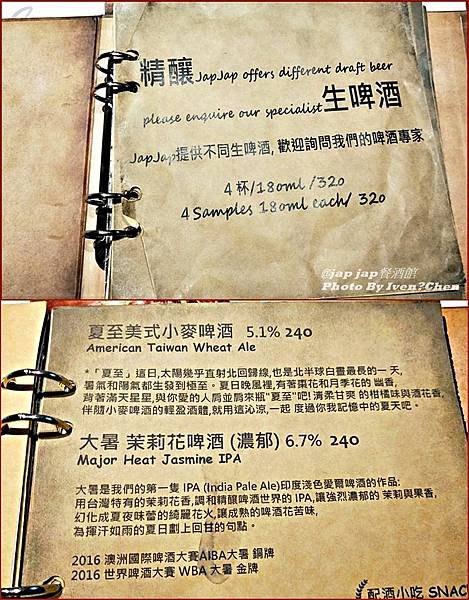 精釀 JapJap offers different draft beer
please enquire our specialist 生啤酒
JapJap提供不同生啤酒, 歡迎詢問我們的啤酒專家
4杯/180ml /320
4 Samples 180ml each/ 320
@jap jap餐酒館
Photo By Iven?Chen
夏至美式小麥啤酒 5.1% 240
American Taiwan Wheat Ale
*「夏至」這日,太陽幾乎直射北回歸線,也是北半球白晝最長的一天,
暑氣和陽氣都生發到極至。夏日晚風裡,有著棗花和月季花的 幽香,
背著滿天星星,與你愛的人肩並肩來瓶"夏至"吧! 清柔甘爽 的柑橘味與酒花香,
伴隨小麥啤酒的輕盈酒體,就用這沁涼,一起 度過你我記憶中的夏天吧。
大暑 茉莉花啤酒 (濃郁) 6.7% 240
Major Heat Jasmine IPA
大暑是我們的第一隻 IPA (India Pale Ale)印度淺色愛爾啤酒的作品:
用台灣特有的茉莉花香,調和精釀啤酒世界的 IPA,讓強烈濃郁的 茉莉與果香,
幻化成夏夜味蕾的綺麗花火,讓成熟的啤酒花苦味,
為揮汗如雨的夏日劃上回甘的句點。
2016 澳洲國際啤酒大賽AIBA大暑 銅牌
2016 世界啤酒大賽 WBA 大暑 金牌
配酒小吃 SNAC